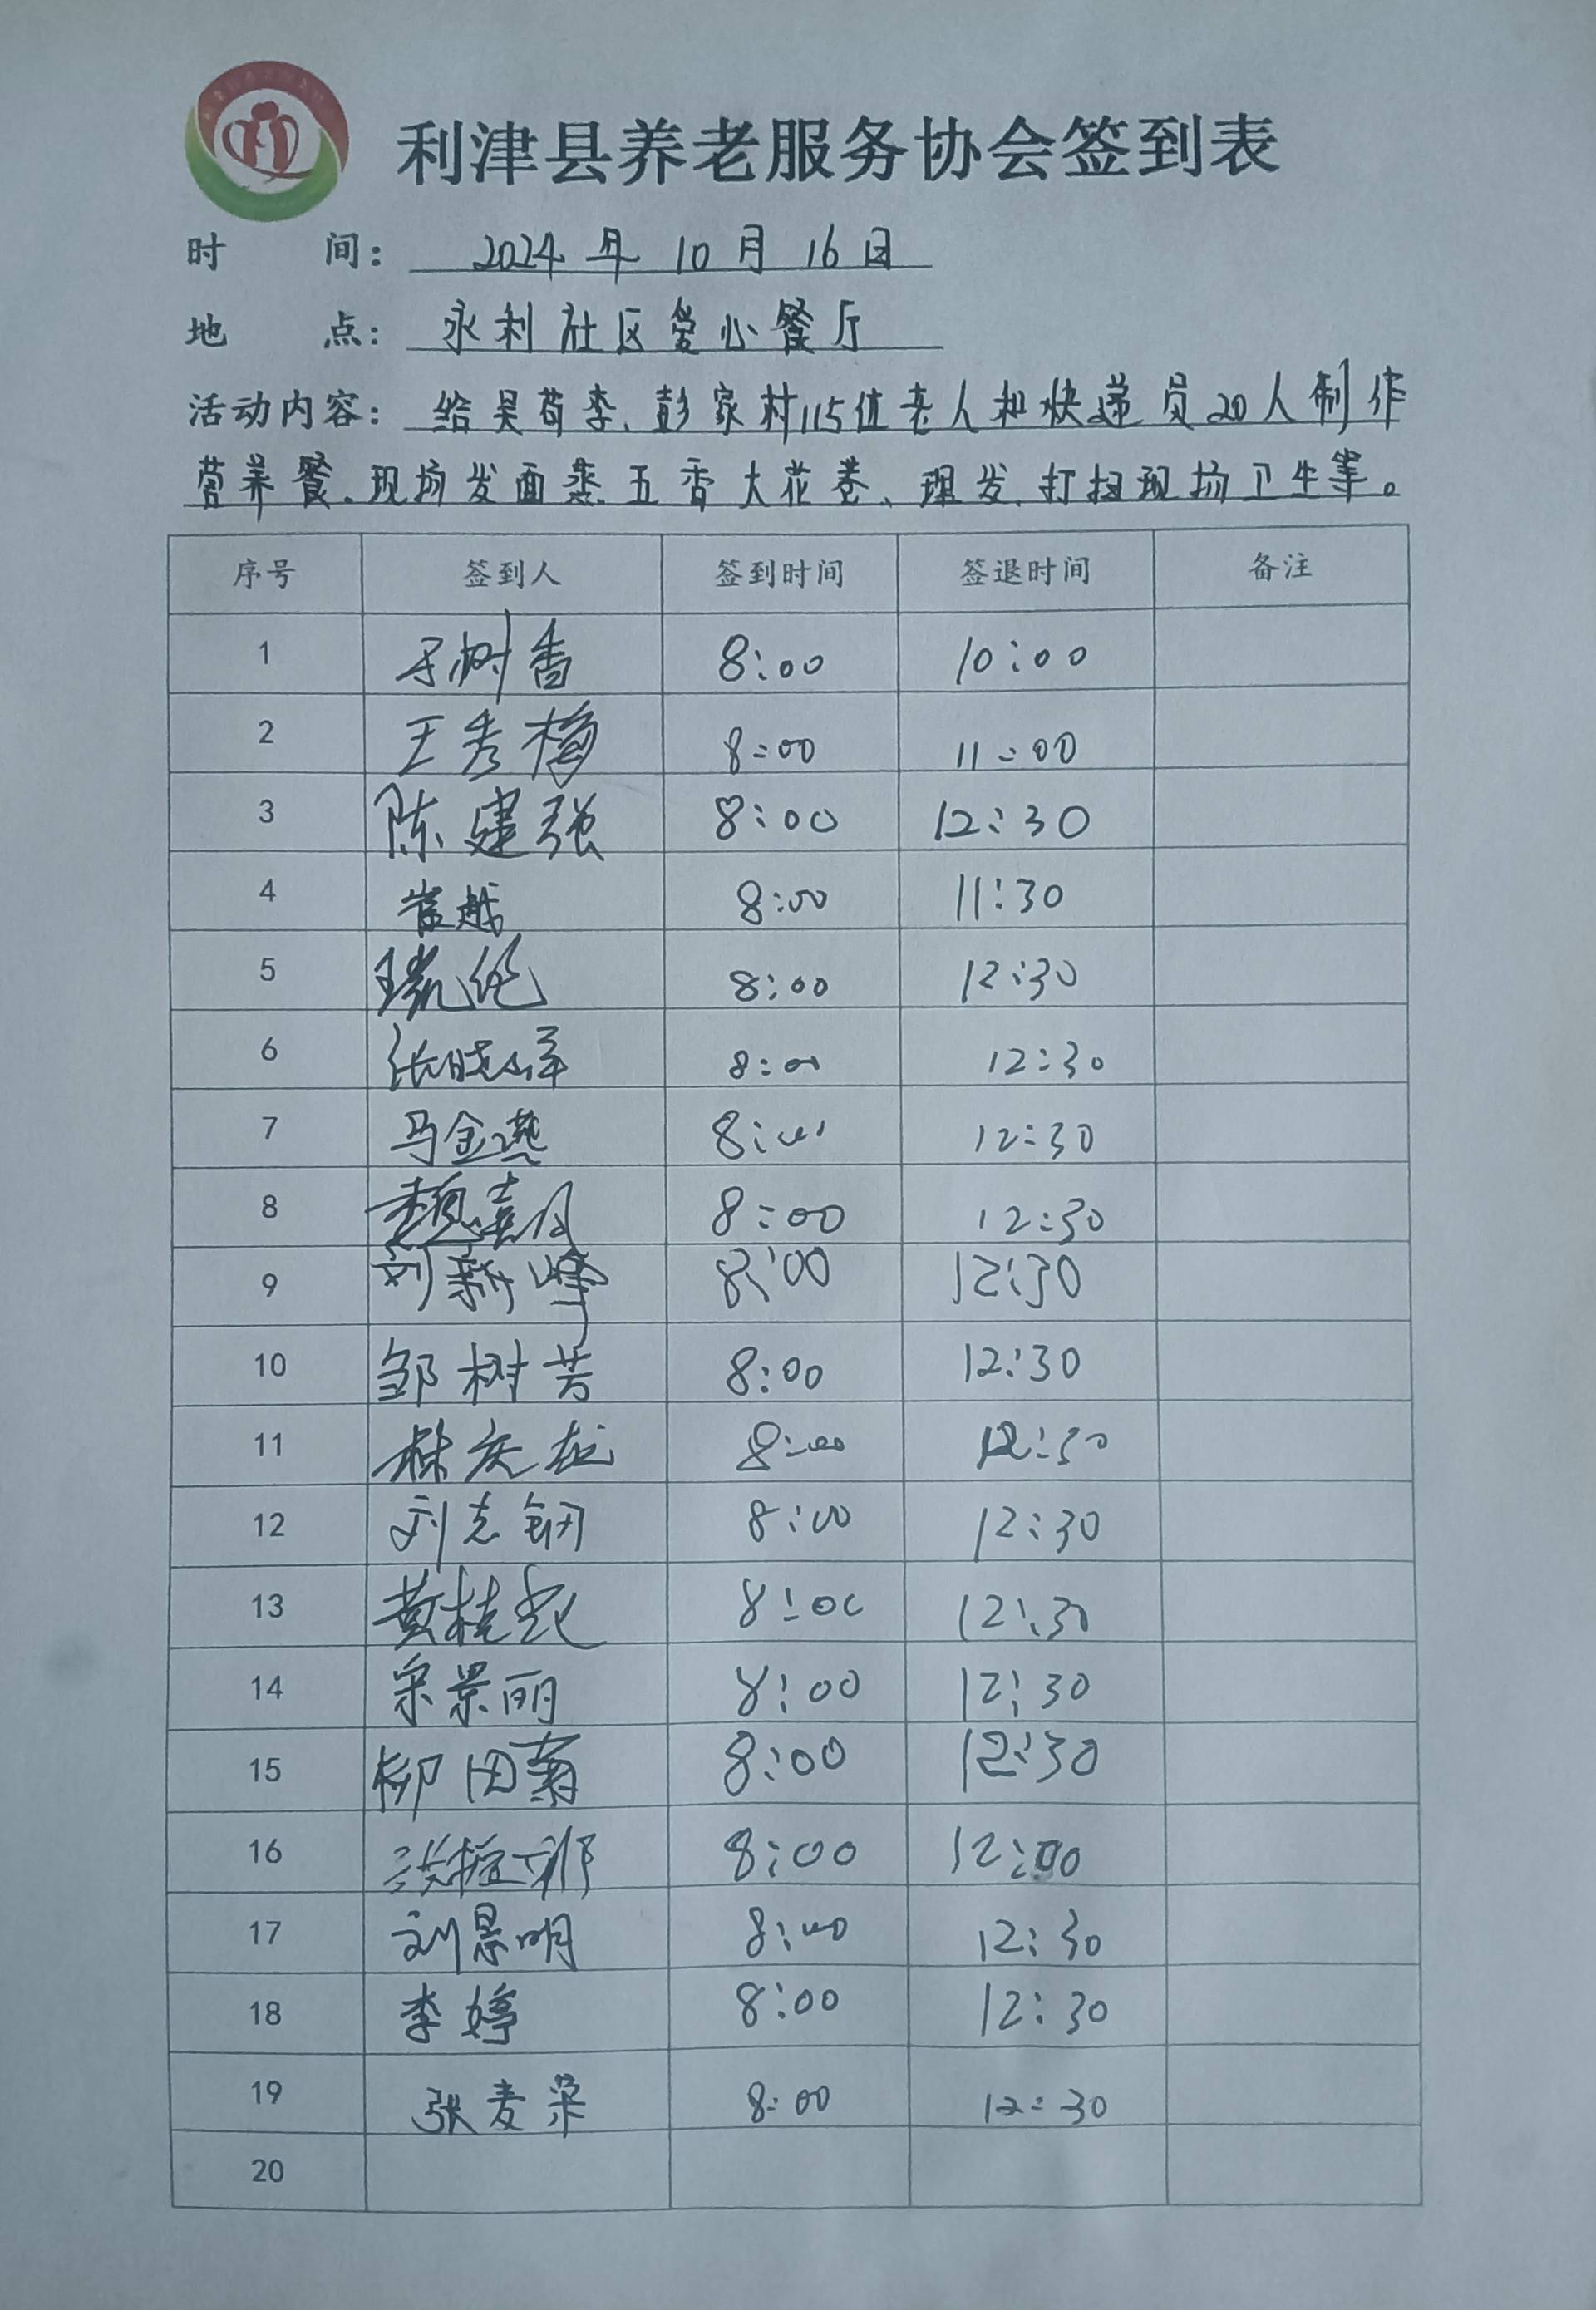 利津县养老服务协会签到表
时 间: 2024年10月16日
地 点: 永利社区爱心餐厅
活动内容: 给吴苟李、彭家村115位老人和快递员20人制作
营养餐、现场发面蒸五香大花卷、理发、打扫现场卫生等。
序号 签到人 签到时间 签退时间 备注
1 于树香 8:00 10:00
2 王秀梅 8:00 11:00
3 陈建强 8:00 12:30
4 崔越 8:00 11:30
5 8:00 12:30
6 张晓峰 8:00 12:30
7 马金燕 8:00 12:30
8 8:00 12:30
9 刘新峰 8:00 12:30
10 邹树芳 8:00 12:30
11 8:00 12:30
12 刘志钢 8:00 12:30
13 黄桂 8:00 12:30
14 宋景丽 8:00 12:30
15 柳田菊 8:00 12:30
16 8:00 12:00
17 刘景明 8:00 12:30
18 李婷 8:00 12:30
19 张麦荣 8:00 12:30
20